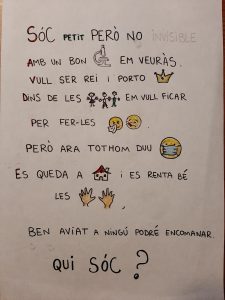 SÓC PETIT PERÒ NO INVISIBLE
AMB UN BON EM VEURÀS.
VULL SER REI I PORTO
DINS DE LES EM VULL FICAR
PER FER-LES
PERÒ ARA TOTHOM DUU
ES QUEDA A I ES RENTA BÉ
LES
BEN AVIAT A NINGÚ PODRÉ ENCOMANAR.
QUI SÓC?